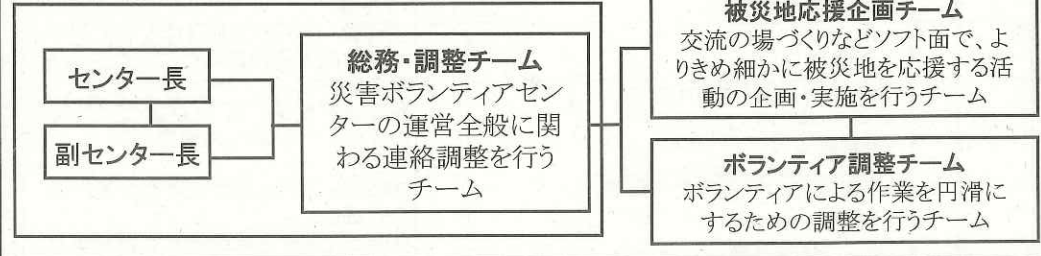 センター長
副センター長
総務・調整チーム
災害ボランティアセン
ターの運営全般に関
わる連絡調整を行う
チーム
被災地応援企画チーム
交流の場づくりなどソフト面で、よ
りきめ細かに被災地を応援する活
動の企画・実施を行うチーム
ボランティア調整チーム
ボランティアによる作業を円滑に
するための調整を行うチーム